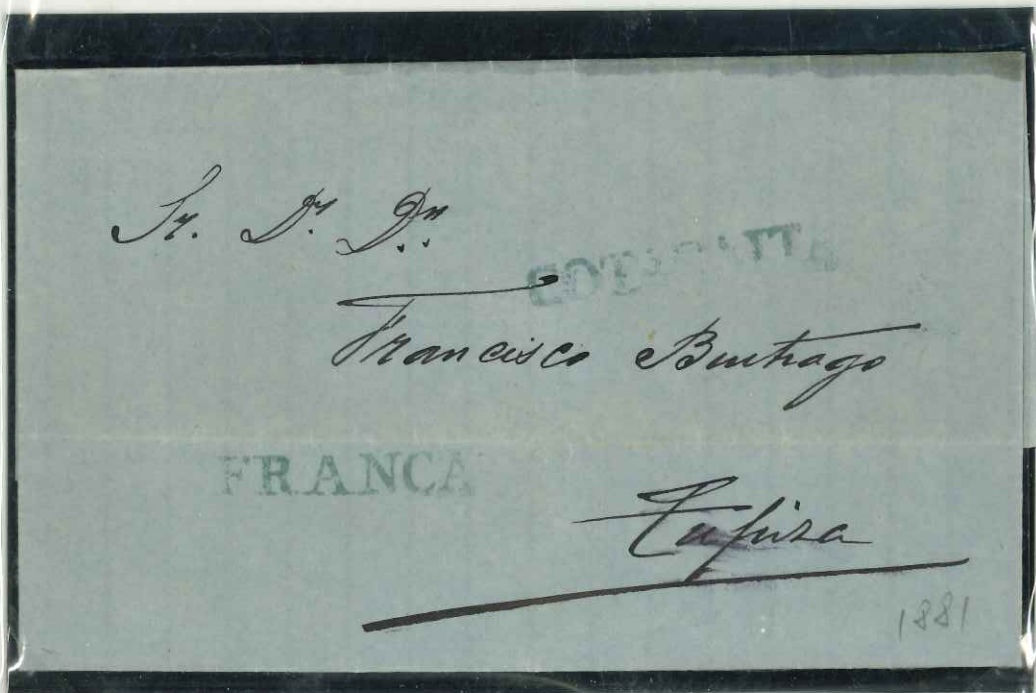 Sr. Dr. Dn.
COTAGAITA
Francisco Buitrago
FRANCA
Tupiza
1881